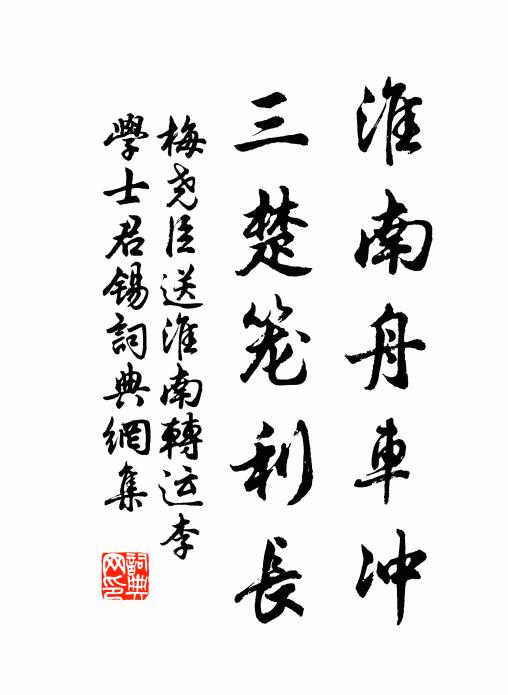 淮南舟車冲
三楚笼利長
梅尧臣送淮南轉运李
學士君锡詞典網集
詞典網印